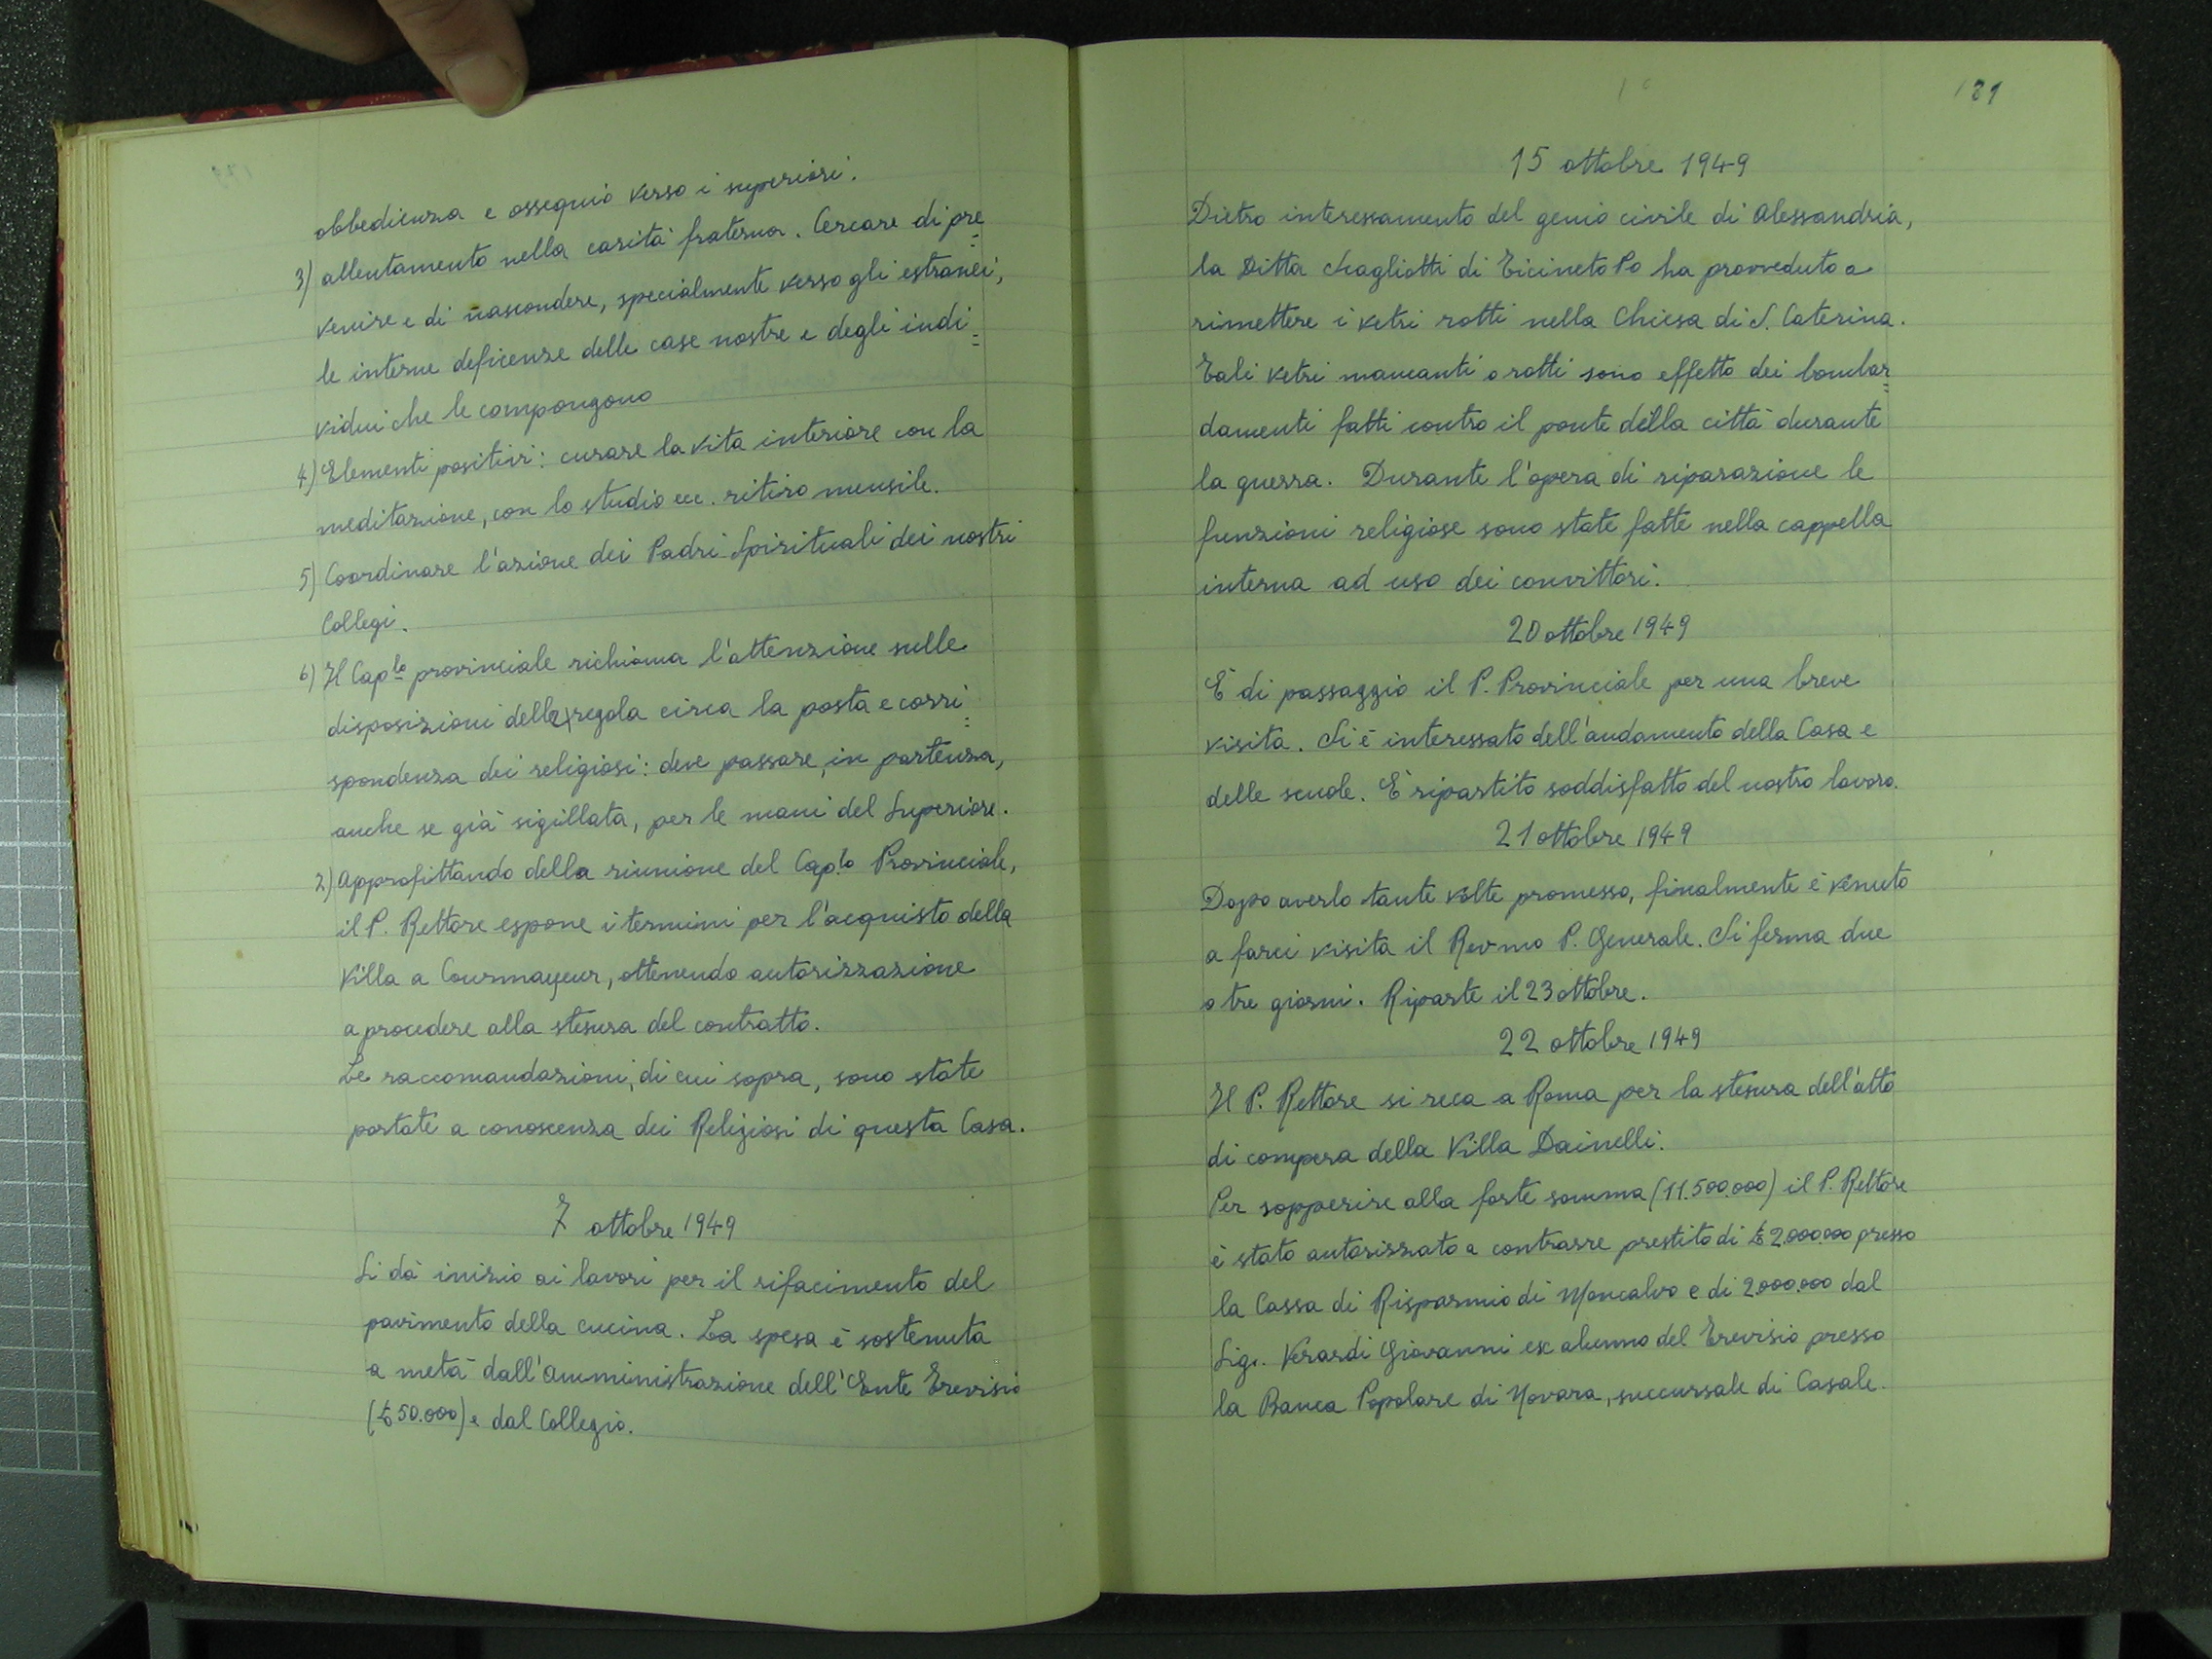 obbedienza e ossequio verso i superiori.
3) allentamento nella carità fraterna. Cercare di pre=
venire e di nascondere, specialmente verso gli estranei,
le interne deficenze delle case nostre e degli indi=
vidui che le compongono
4) Elementi positivi: curare la vita interiore con la
meditazione, con lo studio ecc. ritiro mensile.
5) Coordinare l'azione dei Padri Spirituali dei nostri
Collegi.
6) Il Cap.lo provinciale richiama l'attenzione sulle
disposizioni della regola circa la posta e corri=
spondenza dei religiosi: deve passare, in partenza,
anche se già sigillata, per le mani del Superiore.
2) Approfittando della riunione del Cap.lo Provinciale,
il P. Rettore espone i termini per l'acquisto della
Villa a Courmayeur, ottenendo autorizzazione
a procedere alla stesura del contratto.
Le raccomandazioni, di cui sopra, sono state
portate a conoscenza dei Religiosi di questa Casa.
7 ottobre 1949
Si dà inizio ai lavori per il rifacimento del
pavimento della cucina. La spesa è sostenuta
a metà dall'Amministrazione dell'Ente Trevisio
(£ 50.000) e dal Collegio.
181
15 ottobre 1949
Dietro interessamento del genio civile di Alessandria,
la Ditta di Ticineto Po ha provveduto a
rimettere i vetri rotti nella Chiesa di S. Caterina.
Tali vetri mancanti o rotti sono effetto dei bombar=
damenti fatti contro il ponte della città durante
la guerra. Durante l'opera di riparazione le
funzioni religiose sono state fatte nella cappella
interna ad uso dei convittori.
20 ottobre 1949
È di passaggio il P. Provinciale per una breve
visita. Si è interessato dell'andamento della Casa e
delle scuole. È ripartito soddisfatto del nostro lavoro.
21 ottobre 1949
Dopo averlo tante volte promesso, finalmente è venuto
a farci visita il Rev.mo P. Generale. Si ferma due
o tre giorni. Riparte il 23 ottobre.
22 ottobre 1949
Il P. Rettore si reca a Roma per la stesura dell'atto
di compera della Villa Dainelli.
Per sopperire alla forte somma (11.500.000) il P. Rettore
è stato autorizzato a contrarre prestito di £ 2.000.000 presso
la Cassa di Risparmio di Moncalvo e di 2.000.000 dal
Sig. Verardi Giovanni ex alunno del Trevisio presso
la Banca Popolare di Novara, succursale di Casale.